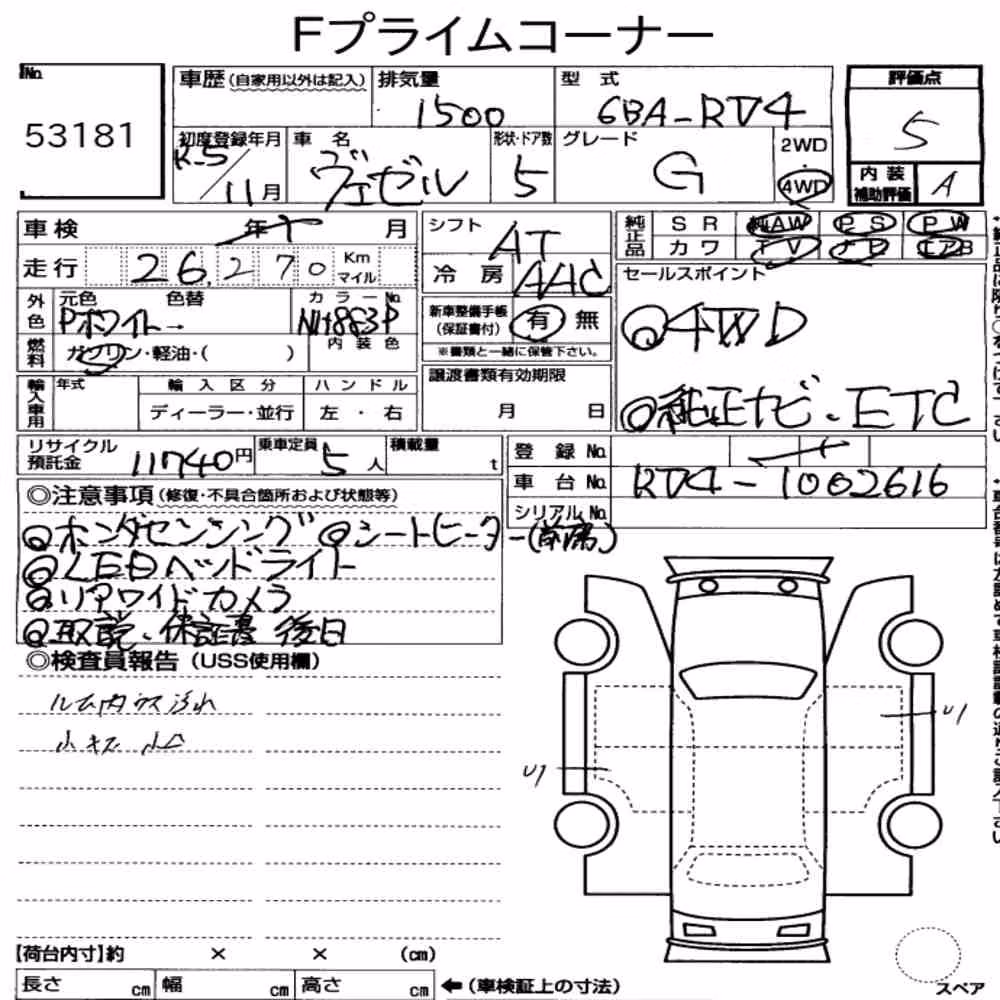 Fプライムコーナー
No. 53181
車歴(自家用以外は記入)
排気量 1500
型式 6BA-RV4
評価点 S
初度登録年月 R-5/11月
車名 ヴェゼル
形状・ドア数 5
グレード G
2WD 4WD
内装補助評価 A
車検 年 月
走行 26,270 Km マイル
シフト AT
冷房 AAC
純正品 SR 純AW PS PW
カワ TV ナビ エアB
セールスポイント
◎4WD
◎純正ナビ・ETC
外色 元色 色替 カラーNo.
Pホワイト→ NH883P
燃料 ガソリン・軽油・( ) 内装色
新車整備手帳(保証書付) 有 無
※書類と一緒に保管下さい。
輸入車用 年式 輸入区分 ハンドル
ディーラー・並行 左・右
譲渡書類有効期限
月 日
リサイクル預託金 11740円
乗車定員 5人
積載量 t
登録No.
車台No. RV4-1002616
シリアルNo.
◎注意事項(修復・不具合箇所および状態等)
◎ホンダセンシング ◎シートヒーター(前席)
◎LEDヘッドライト
◎リアワイドカメラ
◎取説、保証書 後日
◎検査員報告(USS使用欄)
ルーム内ウス汚れ
小キズ 小凸
U1
U1
【荷台内寸】約 × × (cm)
長さ cm 幅 cm 高さ cm ←(車検証上の寸法)
スペア